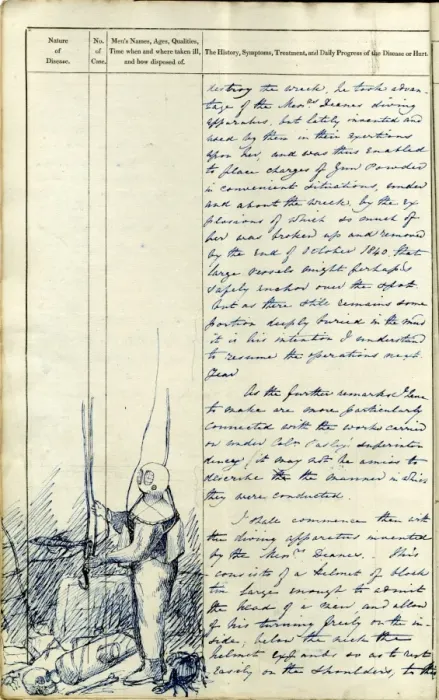 Nature
of
Disease.
No.
of
Case.
Men's Names, Ages, Qualities,
Time when and where taken ill,
and how disposed of.
The History, Symptoms, Treatment, and Daily Progress of the Disease or Hurt.
destroy the wreck, he took advan-
tage of the Messrs Deanes diving
apparatus, but lately invented and
used by them in their exertions
upon her, and was thus enabled
to place charges of Gun Powder
in convenient situations, under
and about the wreck, by the ex
plosions of which so much of
her was broken up and removed
by the end of October 1840, that
large vessels might perhaps
safely anchor over the spot
but as there still remains some
portion deeply buried in the mud
it is his intention I understand
to resume the operations next
Year
As the further remarks I have
to make are more particularly
connected with the works carried
on under Coln Pasley's superinten
dency, it may not be amiss to
describe the manner in which
they were conducted.
I shall commence then with
the diving apparatus invented
by the Messrs Deanes. This
consists of a helmet of block
tin large enough to admit
the head of a man, and allow
of his turning freely on the in-
side; below the neck the
helmet expands so as to rest
easily on the shoulders, to the